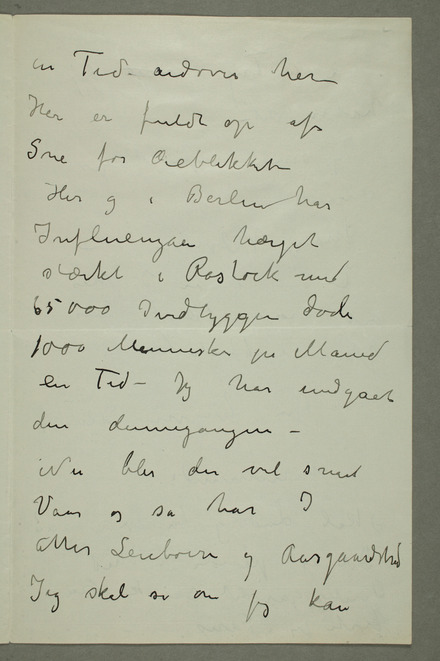 en Tid udover her
Her er fuldt op af
Sne for Øieblikket
Her og i Berlin har
Influenzaen hærget
stærkt i Rostock med
65000 Indbyggere døde
1000 Mennesker pr Maaned
en Tid – Jeg har undgaaet
den dennegangen –
Nu blir det vel snart
Vaar og så har I
atter og Aasgaardstrand
Jeg skal se om jeg kan